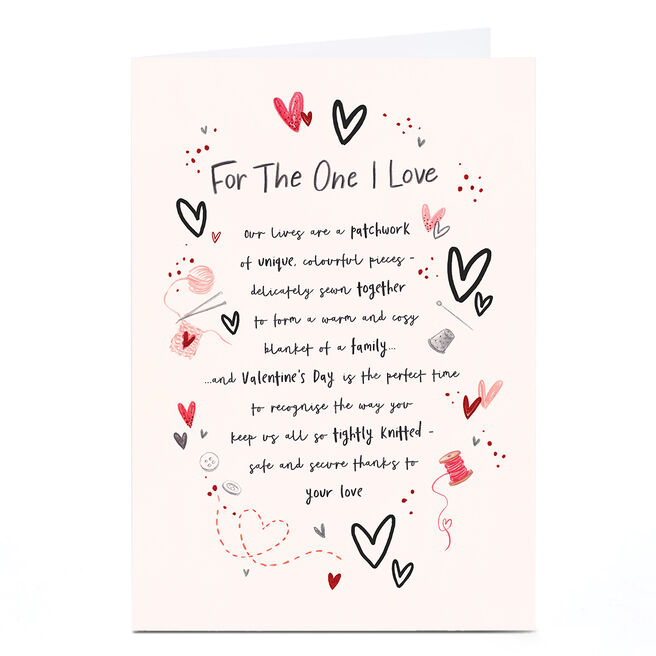 For The One I Love
Our lives are a patchwork
of unique, colourful pieces -
delicately sewn together
to form a warm and cosy
blanket of a family...
...and Valentine's Day is the perfect time
to recognise the way you
keep us all so tightly knitted -
safe and secure thanks to
your love